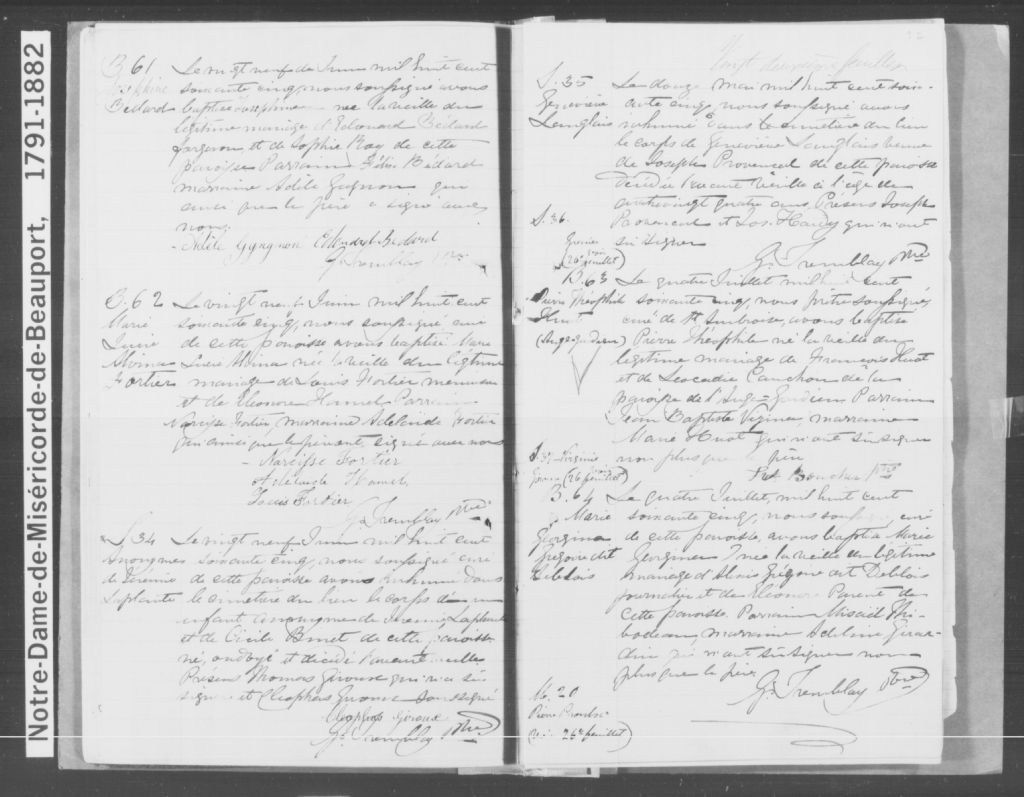 Notre-Dame-de-Miséricorde-de-Beauport, 1791-1882
B. 61
Josephine
Bédard
Le vingt neuf de Juin mil huit cent
soixante cinq, nous soussigné avons
baptisé Josephine née la veille du
légitime mariage d'Edouard Bédard
forgeron et de Sophie Roy de cette
paroisse Parrain Bédard
marraine Adèle Gagnon qui
ainsi que le père a signé avec
nous.
Adèle Gagnon Edouard Bedard
G. Tremblay Ptre
B. 62
Marie
Fortier
Le vingt neuf Juin mil huit cent
soixante cinq, nous soussigné curé
de cette paroisse avons baptisé Marie
née la veille du légitime
mariage de Louis Fortier menuisier
et de Eléonore Hamel Parrain
Narcisse Fortier marraine Adelaide
qui ainsi que le père ont signé avec nous
Narcisse Fortier
Adelaide Hamel
Louis Fortier
G. Tremblay Ptre
S. 34
Anonyme
de Jérémie
Laplante
Le vingt neuf Juin mil huit cent
soixante cinq, nous soussigné curé
de cette paroisse avons inhumé dans
le cimetière du lieu le corps d'un
enfant anonyme de Jérémie Laplante
et de Cécile Binet de cette paroisse
né, ondoyé et décédé l'avant veille
Présens Thomas Giroux qui n'a su
signer et Cléophas Giroux soussigné
Cléophas Giroux
G. Tremblay Ptre
Vingt deuxième feuillet
S. 35
Geneviève
Langlais
Le douze Mai mil huit cent soix-
ante cinq, nous soussigné avons
inhumé dans le cimetière du lieu
le corps de Geneviève Langlais veuve
de Joseph Provençal de cette paroisse
décédée l'avant veille à l'âge de
quatrevingt quatre ans. Présens Joseph
Provencal et Jos. Hardy qui n'ont
su signer
G. Tremblay Ptre
S. 36.
(26e feuillet)
B. 63
Pierre Théophile
Huot
(Ange-Gardien)
Le quatre Juillet mil huit cent
soixante cinq, nous prêtre soussigné,
curé de St Ambroise, avons baptisé
Pierre Théophile né la veille du
légitime mariage de François Huot
et de Léocadie Cauchon de la
paroisse de l'Ange-Gardien Parrain
Jean Baptiste Vezina, marraine
Marie Huot qui n'ont su signer
non plus que le père
Boucher Ptre
S. 37 Virginie
(26 feuillet)
B. 64
Marie
Georgina
Grégoire dit
Deblois
Le quatre Juillet, mil huit cent
soixante cinq, nous soussigné, curé
de cette paroisse, avons baptisé Marie
Georgina née la veille du légitime
mariage d'Alexis Grégoire dit Deblois
journalier et de Eléonore Parent de
cette paroisse. Parrain Misaël Thi-
bodeau, marraine Adeline Girar-
din qui n'ont su signer non
plus que le père
G. Tremblay Ptre
M. 20
Pierre
(Voir 26e feuillet)